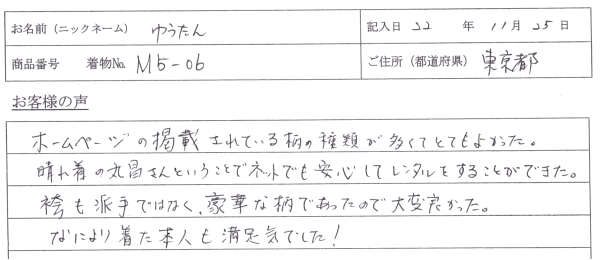 お名前（ニックネーム） ゆうたん 記入日 22 年 11月 25日
商品番号 着物No. M5-06 ご住所（都道府県） 東京都
お客様の声
ホームページの掲載されている柄の種類が多くてとてもよかった。
晴れ着の丸昌さんということでネットでも安心してレンタルをすることができた。
袴も派手ではなく、豪華な柄であったので大変良かった。
なにより着た本人も満足気でした！